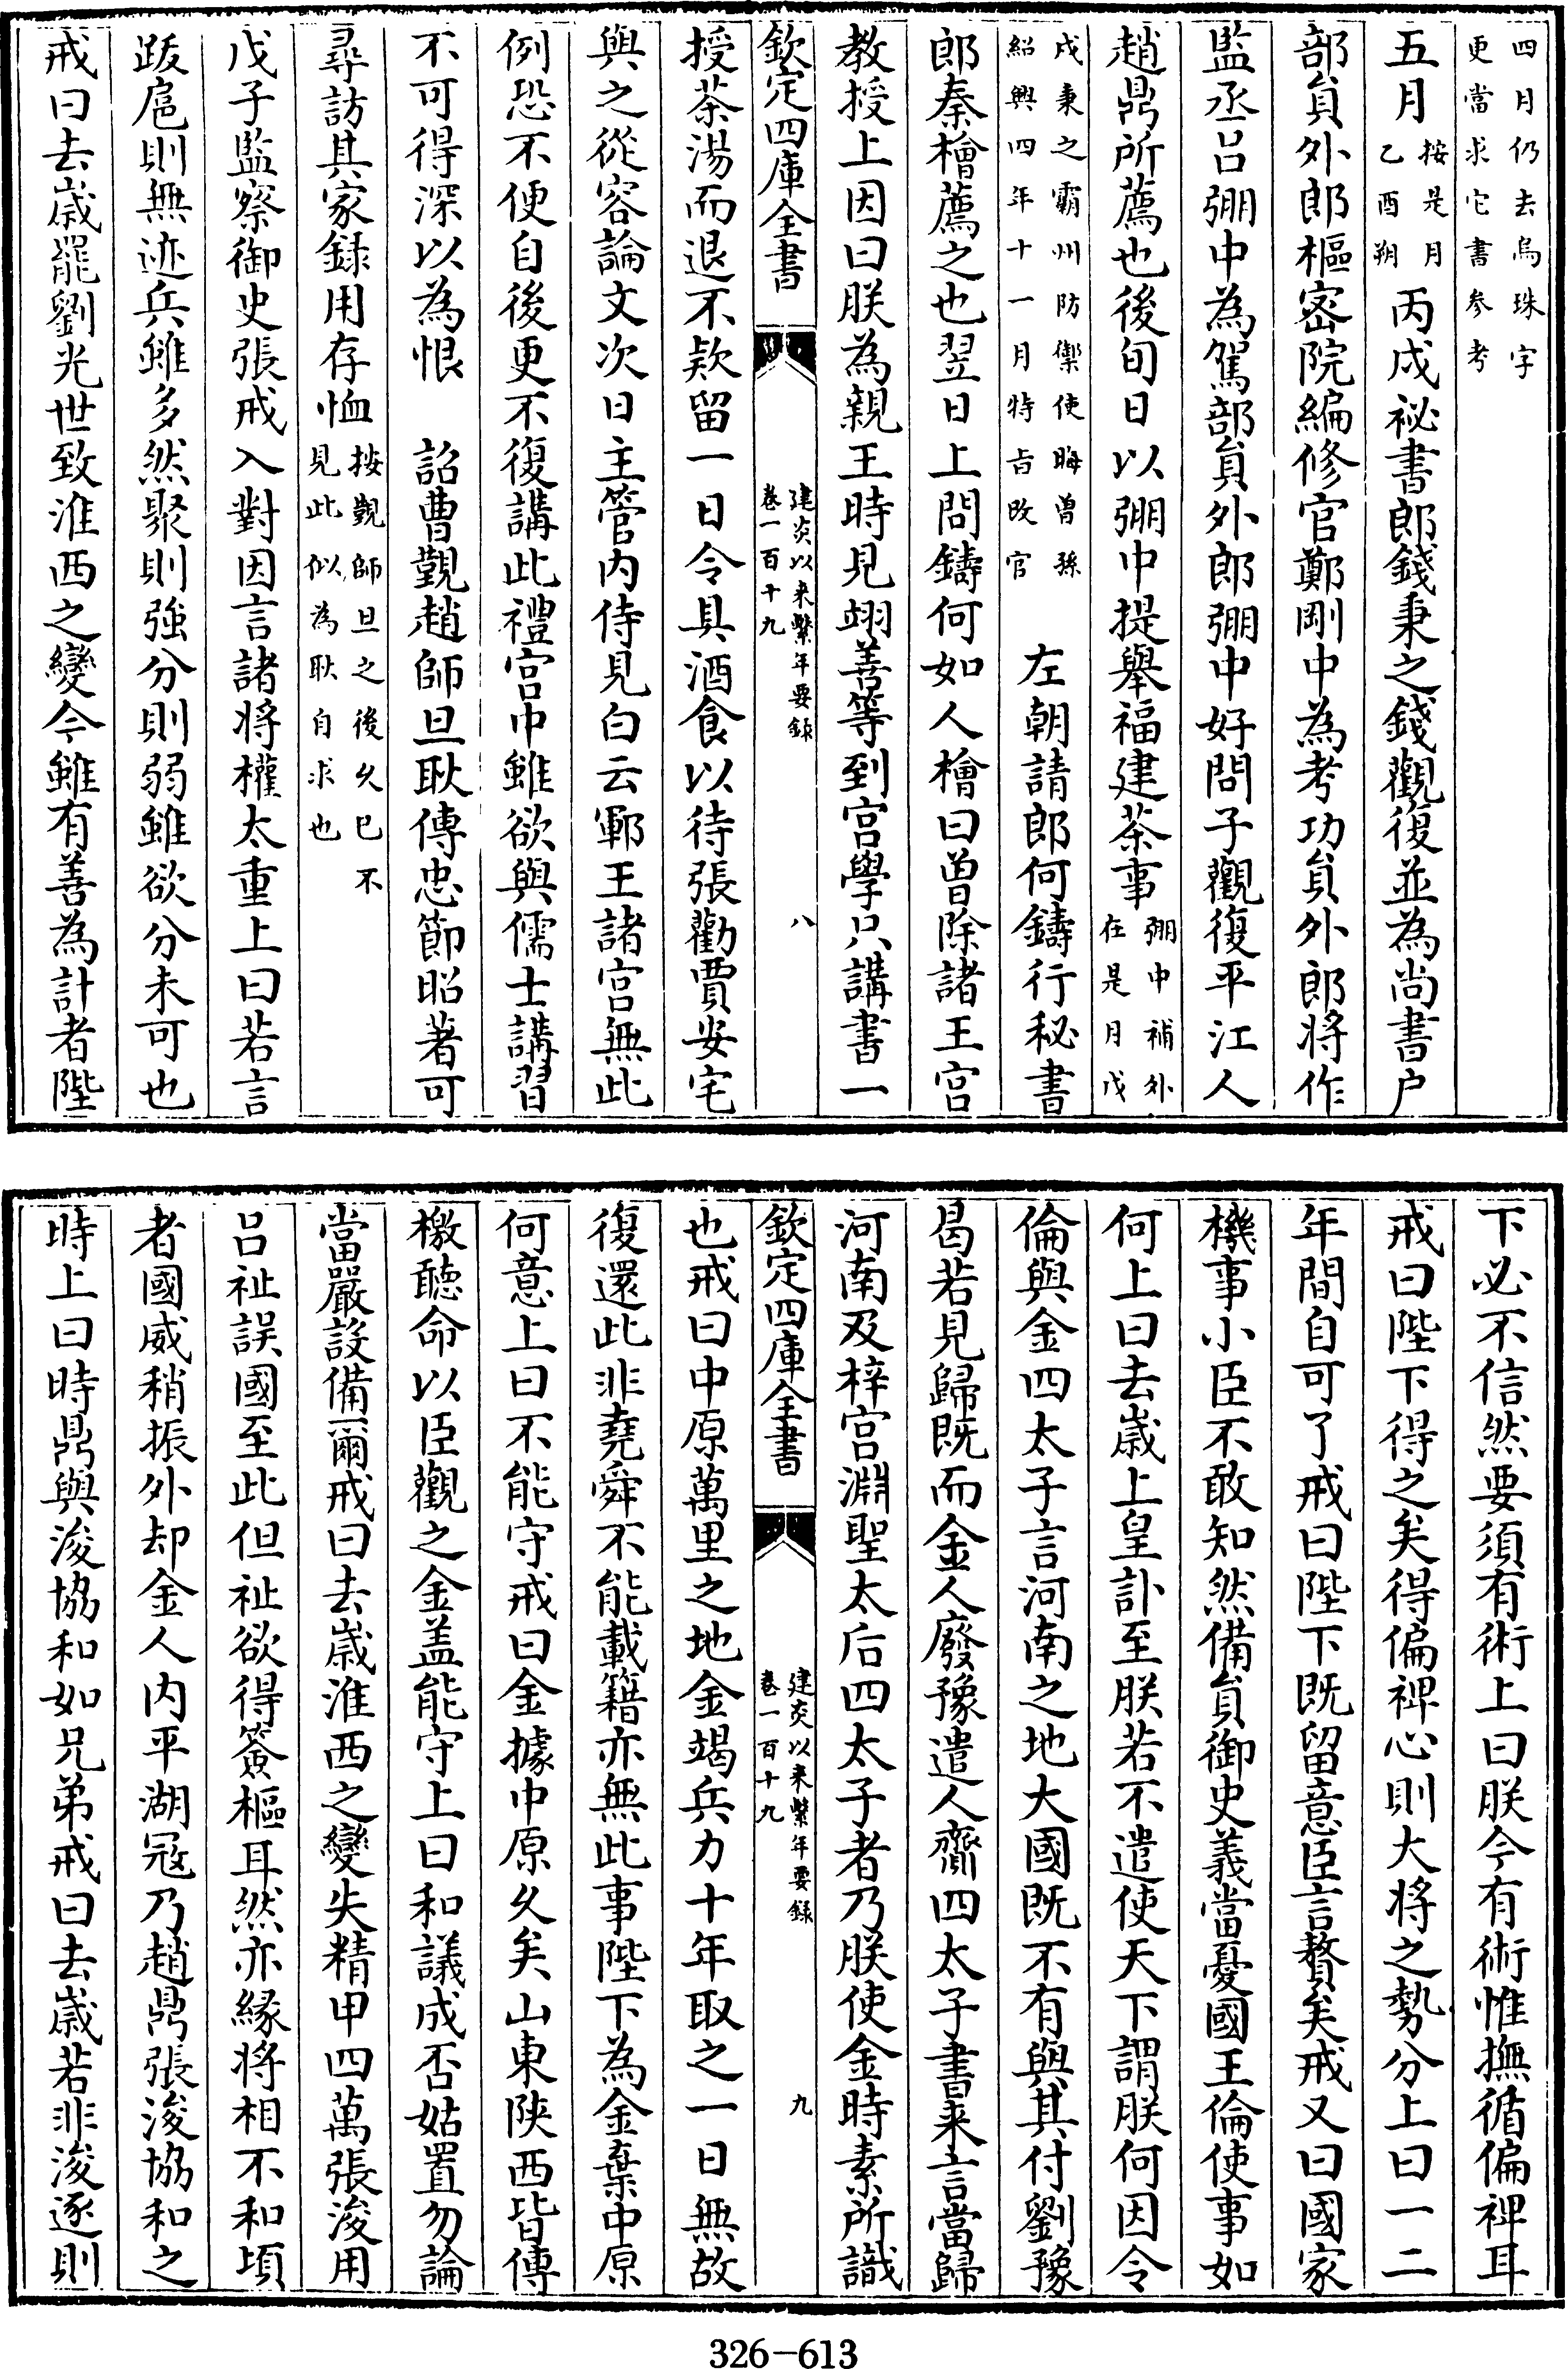 四月仍去烏珠字
更當求它書參考
五月按是月乙酉朔丙戌祕書郎錢秉之錢觀復並為尚書户
部員外郎樞密院編修官鄭剛中為考功員外郎將作
監丞吕弸中為駕部員外郎弸中好問子觀復平江人
趙鼎所薦也後旬日以弸中提舉福建茶事弸中補外在是月戊
戌秉之霸州防禦使晦曽孫紹興四年十一月特㫖改官左朝請郎何鑄行秘書
郎秦檜薦之也翌日上問鑄何如人檜曰曽除諸王宫
教授上因曰朕為親王時見翊善等到宫學只講書一
欽定四庫全書
建炎以来繫年要錄
卷一百十九
八
授茶湯而退不欵留一日令具酒食以待張勸賈安宅
與之從容論文次日主管内侍見白云鄆王諸宫無此
例恐不便自後更不復講此禮宫中雖欲與儒士講習
不可得深以為恨　詔曹覲趙師旦耿傳忠節昭著可
尋訪其家録用存恤按覲師旦之後久已不見此似為耿自求也
戊子監察御史張戒入對因言諸將權太重上曰若言
跋扈則無迹兵雖多然聚則強分則弱雖欲分未可也
戒曰去嵗罷劉光世致淮西之變今雖有善為計者陛
下必不信然要須有術上曰朕今有術惟撫循偏禆耳
戒曰陛下得之矣得偏禆心則大將之勢分上曰一二
年間自可了戒曰陛下既留意臣言贅矣戒又曰國家
機事小臣不敢知然備員御史義當憂國王倫使事如
何上曰去嵗上皇訃至朕若不遣使天下謂朕何因令
倫與金四太子言河南之地大國既不有與其付劉豫
曷若見歸既而金人廢豫遣人齎四太子書来言當歸
河南及梓宫淵聖太后四太子者乃朕使金時素所識
欽定四庫全書
建炎以来繫年要錄
卷一百十九
九
也戒曰中原萬里之地金竭兵力十年取之一日無故
復還此非堯舜不能載籍亦無此事陛下為金棄中原
何意上曰不能守戒曰金據中原久矣山東陜西皆傳
檄聽命以臣觀之金盖能守上曰和議成否姑置勿論
當嚴設備爾戒曰去嵗淮西之變失精甲四萬張浚用
吕祉誤國至此但祉欲得簽樞耳然亦緣將相不和頃
者國威稍振外却金人内平湖冦乃趙鼎張浚協和之
時上曰時鼎與浚協和如兄弟戒曰去嵗若非浚逐則
326-613